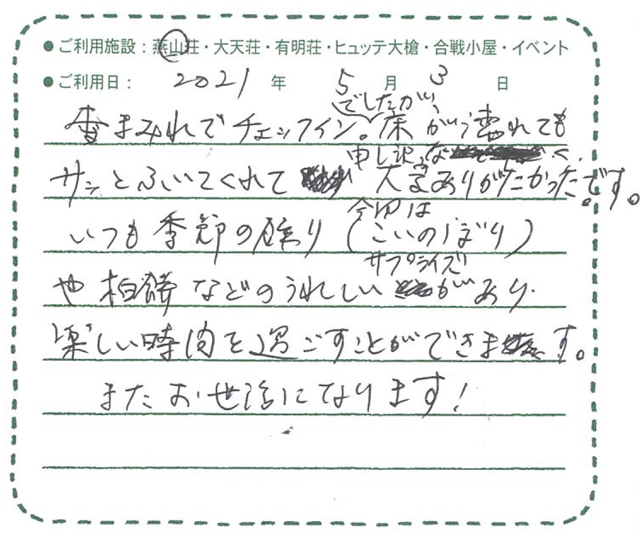 ●ご利用施設：燕山荘・大天荘・有明荘・ヒュッテ大槍・合戦小屋・イベント
●ご利用日： 2021 年 5 月 3 日
雪まみれでチェックイン。でしたが、床がぅ濡れても
サッとふいてくれて 申し訳なく、大変ありがたかったです。
いつも季節の飾り（今回はこいのぼり）
や柏餅などのうれしいサプライズがあり
楽しい時間を過ごすことができます。
またお世話になります！